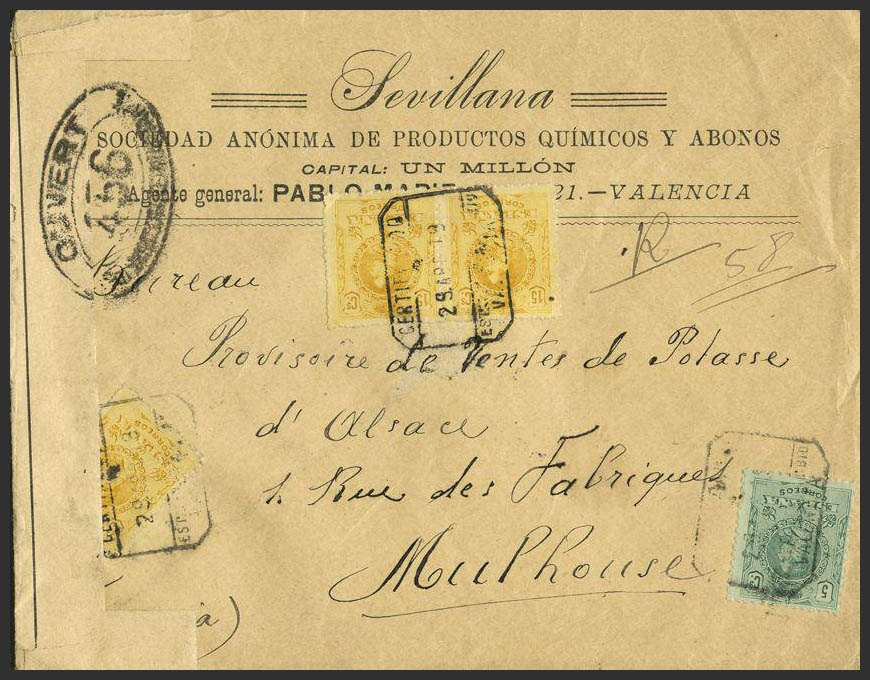 Sevillana
SOCIEDAD ANÓNIMA DE PRODUCTOS QUÍMICOS Y ABONOS
CAPITAL: UN MILLÓN
Agente general: PABLO 21.—VALENCIA
OUVERT
456
R 58
CERTIF
29 ABR 19
EST VA
15 CS 15 CS
Bureau
Provisoire de Ventes de Potasse
d'Alsace
1, Rue des Fabriques
Mulhouse
CORREOS
CERTI
29
EST
CORREOS
5 CS